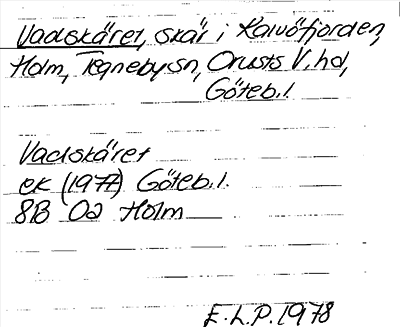 Vadskäret, skär i Kalvöfjorden,
Holm, Tegneby sn, Orusts V. hd,
Göteb. l.
Vadskäret
ek (1977) Göteb. l.
8B 0a Holm
E. L. P. 1978